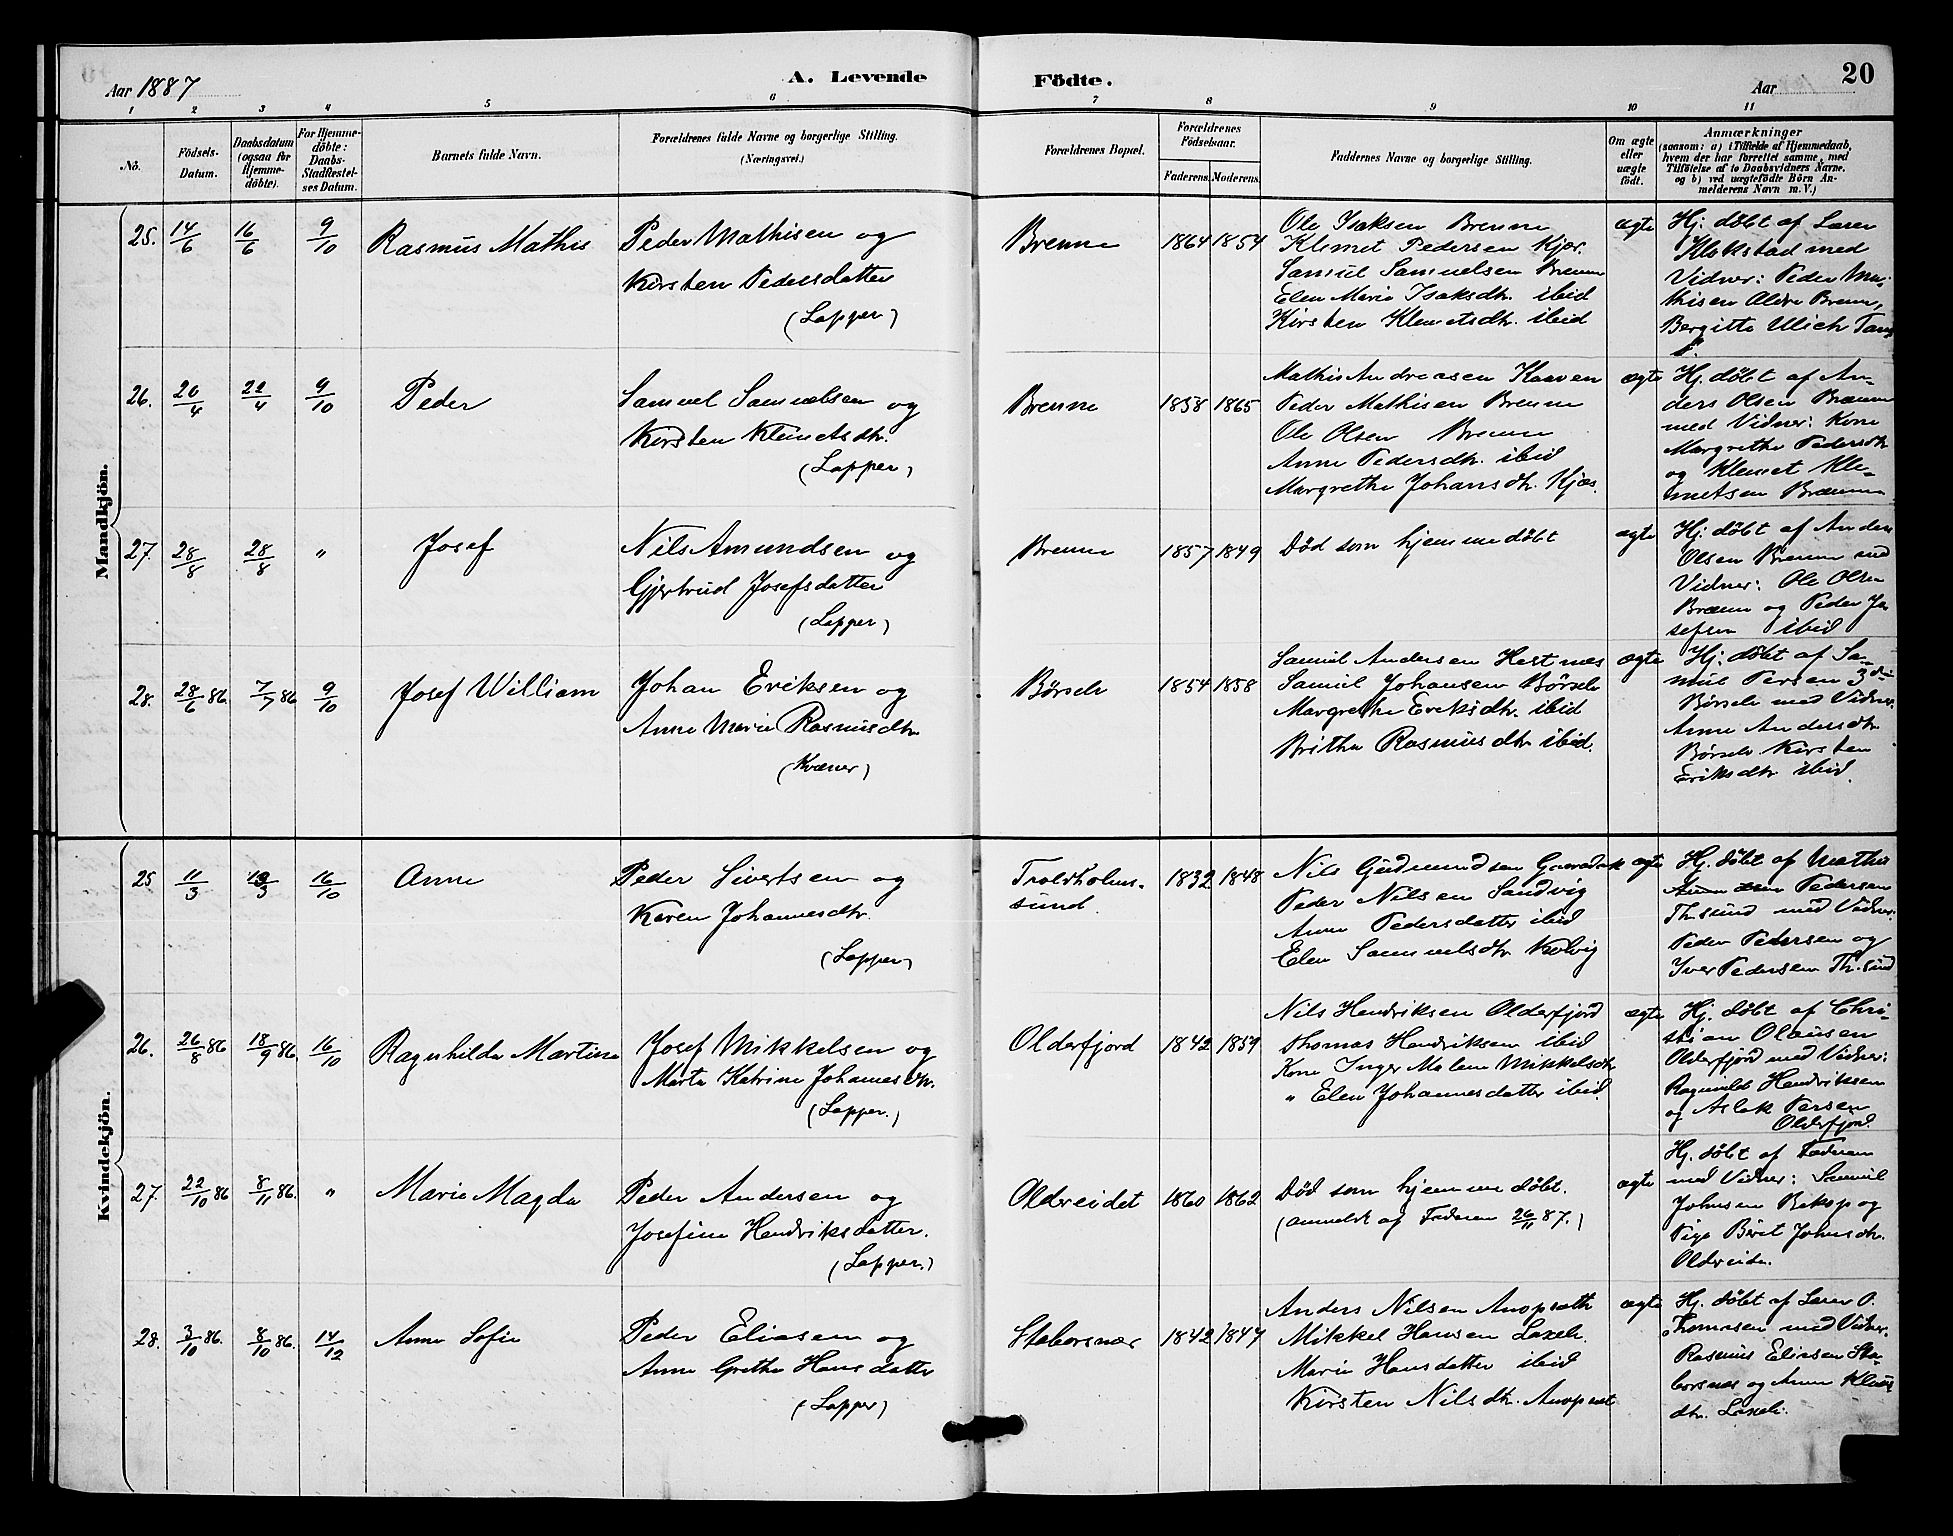 Aar 1887
A. Levende
Födte.
Aar
20
1 2 3 4 5 6 7 8 9 10 11
No.
Födsels-
Datum.
Daabsdatum
(ogsaa for
Hjemme-
döbte).
For Hjemme-
döbte:
Daabs-
Stadfæstel-
ses Datum.
Barnets fulde Navn.
Forældrenes fulde Navne og borgerlige Stilling.
(Næringsvei.)
Forældrenes Bopæl.
Forældrenes
Födselsaar.
Faderens. Moderens.
Faddernes Navne og borgerlige Stilling.
Om ægte
eller
uægte
födt.
Anmærkninger
(saasom: a) i Tilfælde af Hjemmedaab,
hvem der har forrettet samme, med
Tilföielse af to Daabsvidners Navne.
og b) ved uægtefödte Börn An-
melderens Navn m. V.)
Mandkjön.
25. 14/6 16/6 9/10 Rasmus Mathis
Peder Mathisen og
Kirsten Pedersdatter
(Lapper)
Brenne 1864 1854
Ole Isaksen Brenne
Klemet Pedersen Kjæs.
Samuel Samuelsen Brenne
Elen Marie Isaksdtr. ibid
Kirsten Klemetsdtr. ibid
ægte
Hj. døbt af Lærer
Klokstad med
Vidner: Peder Ma-
thisen Brenn,
Bergitte Ulich
26. 20/4 22/4 9/10 Peder
Samuel Samuelsen og
Kirsten Klemetsdtr.
(Lapper)
Brenne 1858 1865
Mathis Andreasen Kaaven
Peder Mathisen Brenne
Ole Olsen Brenne
Anne Pedersdtr. ibid
Margrethe Johansdtr. Kjæs.
ægte
Hj. døbt af An-
ders Olsen Brænne
med Vidner: Kone
Margrethe Pedersdtr
og Klemet Kle-
metsen Brænne
27. 28/8 28/8 " Josef
Nils Amundsen og
Gjertrud Josefsdatter
(Lapper)
Brenne 1857 1849
Død som hjemmedøbt
ægte
Hj. døbt af Anders
Olsen Brenne med
Vidner: Ole Olsen
Brænn og Peder Jo
sefsen ibid
28. 28/6 86. 7/7 86 9/10 Josef William
Johan Eriksen og
Anne Marie Rasmusdtr.
(Kvæner)
Børselv 1854 1858
Samuel Andersen Hestnæs
Samuel Johansen Børselv
Margrethe Eriksdtr. ibid
Britha Rasmusdtr ibid.
ægte
Hj. døbt af Sa-
muel Persen
Børselv med Vidner.
Anne Andersdtr
Børselv Kirsten
Eriksdtr ibid.
Kvindekjön.
25 11/3 /3 16/10 Anne
Peder Sivertsen og
Karen Johannesdtr.
(Lapper)
Troldholm-
sund. 1832 1848
Nils Gudmundsen
Peder Nilsen Sandvig
Anne Pedersdatter ibid
Elen Samuelsdtr Kolvig
ægte
Hj. døbt af Mathis
Pedersen
Th.sund med Vidner.
Peder Pedersen og
Iver Pedersen Th.sund
26. 26/8 86 18/9 86. 16/10 Ragnhilda Martine
Josef Mikkelsen og
Marta Katrine Johannesdtr.
(Lapper.)
Olderfjord 1842 1859
Nils Hendriksen Olderfjord
Thomas Hendriksen ibid
Kone Inger Malene Mikkelsdtr
" Elen Johannesdatter ibid
ægte
Hj. døbt af Chri-
stian Olausen
Olderfjord med Vidner:
Ragnild Hendriksen
og Aslak Persen
Olderfjord.
27. 22/10 86 8/11 86. " Marie Magda
Peder Andersen og
Josefine Hendriksdatter.
(Lapper.)
Oldereidet 1860 1862
Død som hjemmedøbt.
(anmeldt af Faderen 26/11 87.)
ægte
Hj. døbt af Faderen
med Vidner: Samuel
Johnsen og
Pige Berit Johnsdtr.
Oldereide.
28. 3/10 86. 8/10 86. 14/12 Anne Sofie
Peder Eliasen og
Anne Grethe Hansdatter
(Lapper)
Staborsnæs 1842 1847
Anders Nilsen
Mikkel Hansen Laxelv.
Marie Hansdatter ibid
Kirsten Nilsdtr.
ægte
Hj. døbt af Lærer O.
Thomasen med Vidner.
Rasmus Eliasen Sta-
borsnæs og Anne
dtr. Laxelv.